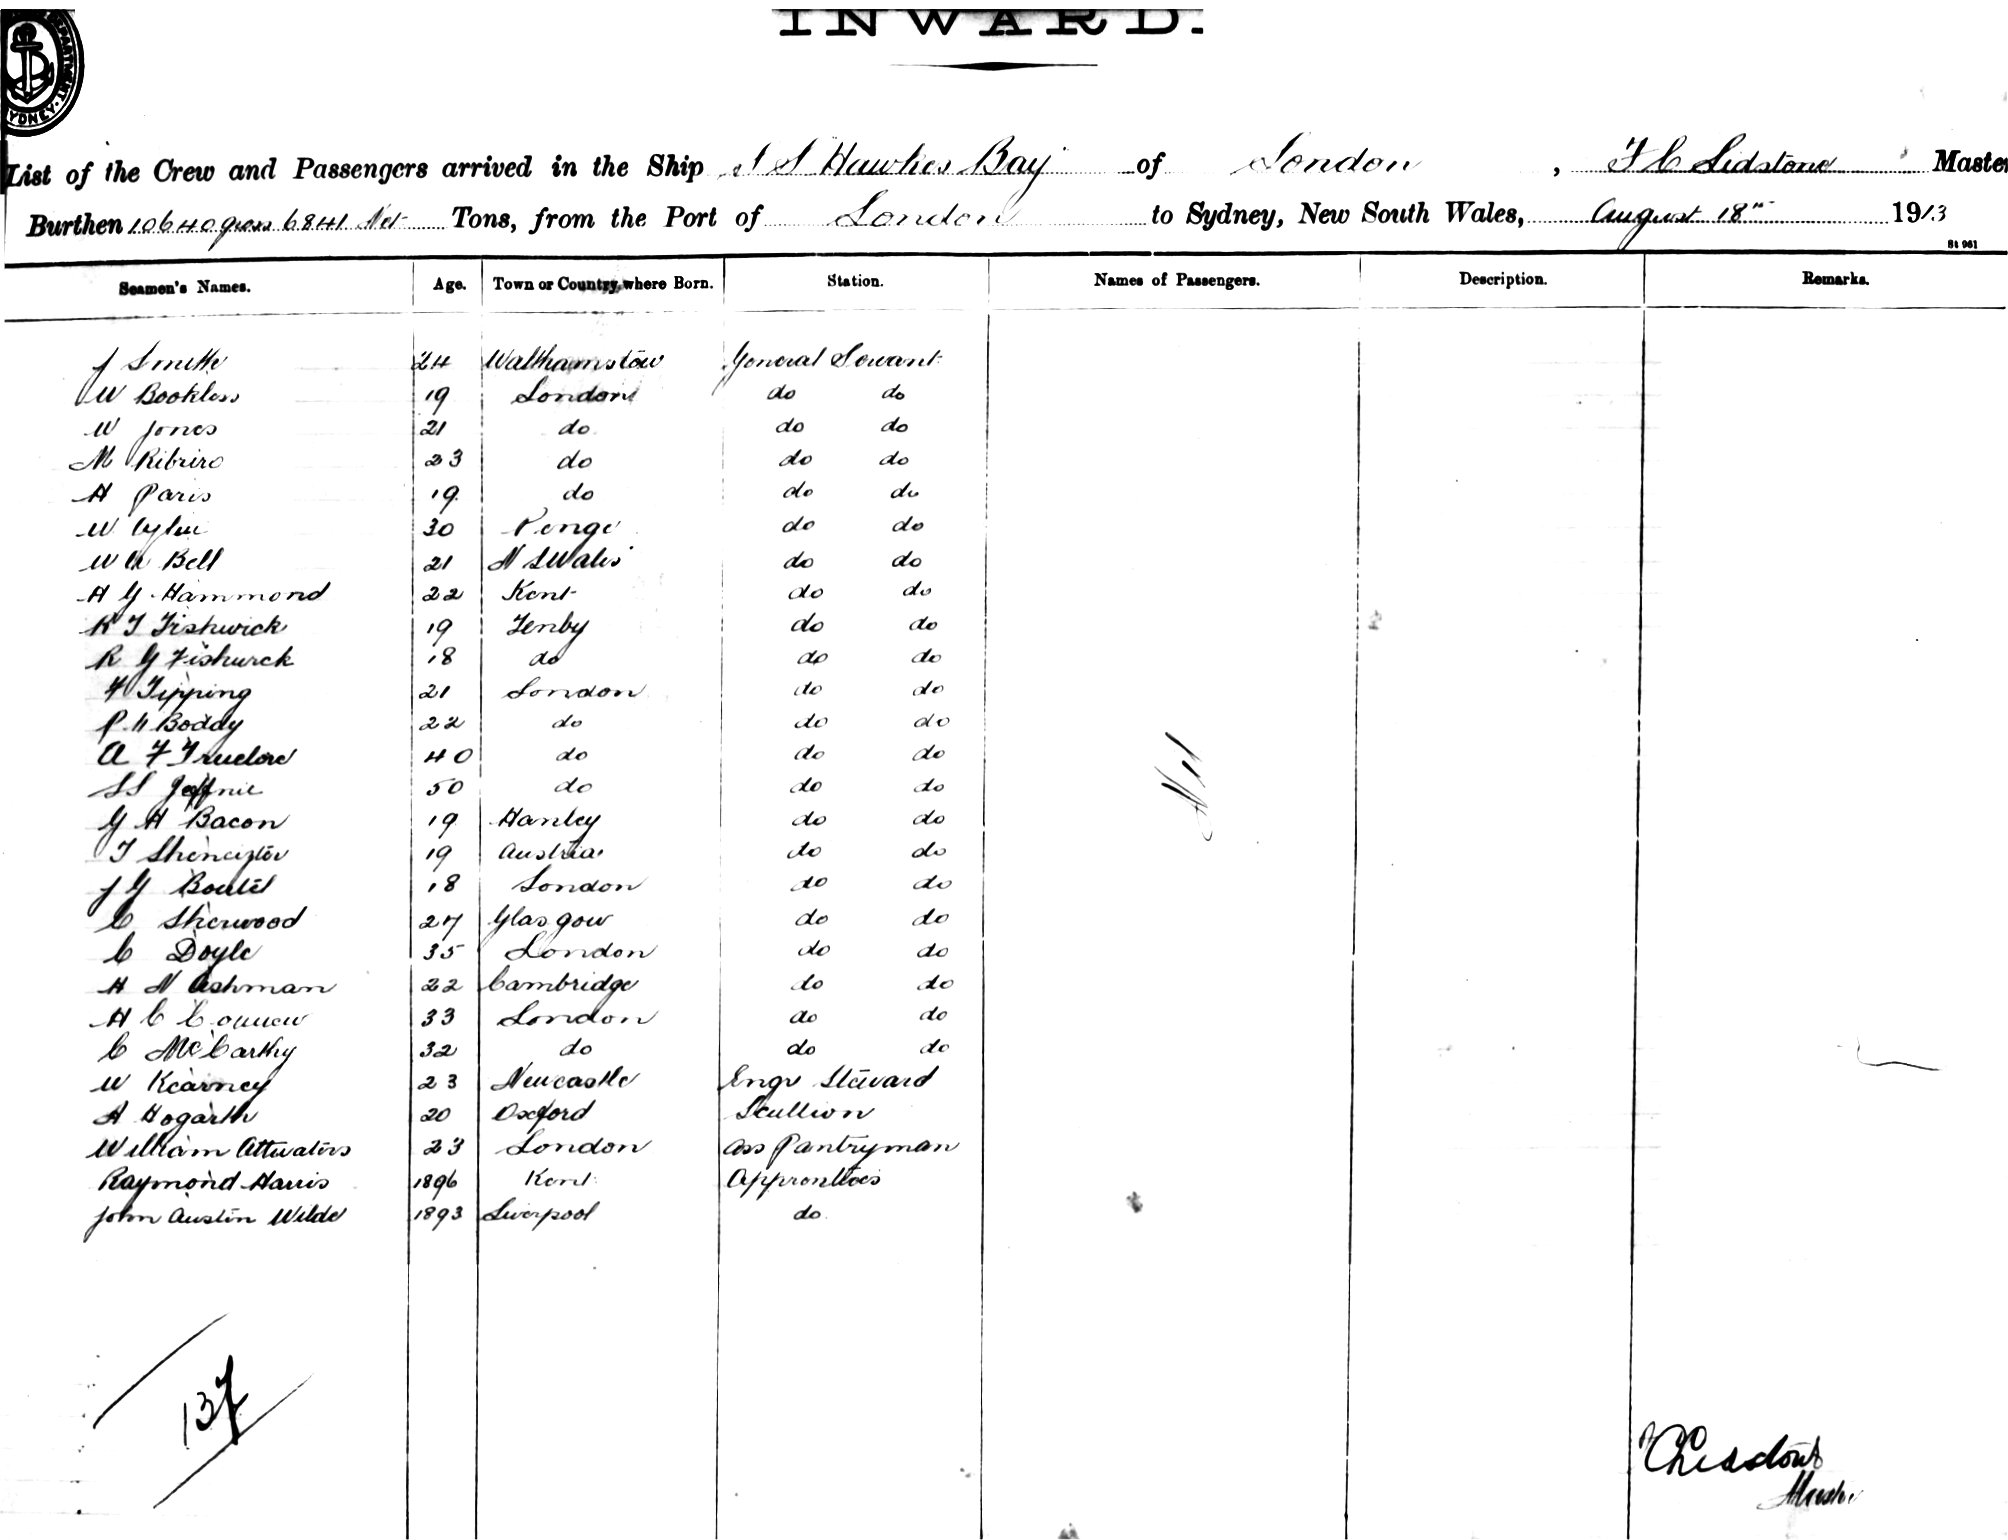 INWARD.
DEPARTMENT. SYDNEY.
List of the Crew and Passengers arrived in the Ship S S Hawkes Bay of London, F C Lidstone Master
Burthen 10640 gross 6841 Net Tons, from the Port of London to Sydney, New South Wales, August 18th 1913
St 961
Seamen's Names. Age. Town or Country where Born. Station. Names of Passengers. Description. Remarks.
J Smith 24 Walthamstow General Servant
W Bookless 19 London do do
W Jones 21 do do do
M Ribriro 23 do do do
H Paris 19 do do do
W 30 Penge do do
W Bell 21 N S Wales do do
H G Hammond 22 Kent do do
R T Fishwick 19 Tenby do do
R G Fishwick 18 do do do
F Tipping 21 London do do
P H Boddy 22 do do do
A F Truelove 40 do do do
S S 50 do do do
G H Bacon 19 Hanley do do
T 19 Austria do do
J G Boutel 18 London do do
C Sherwood 27 Glasgow do do
C Doyle 35 London do do
H N Ashman 22 Cambridge do do
H C 33 London do do
C McCarthy 32 do do do
W Kearney 23 Newcastle Engr Steward
A Hogarth 20 Oxford Scullion
William Attwaters 23 London Ass Pantryman
Raymond Harris 1896 Kent Apprentices
John Austin Wilde 1893 Liverpool do
Nil
137
F C Lidstone
Master